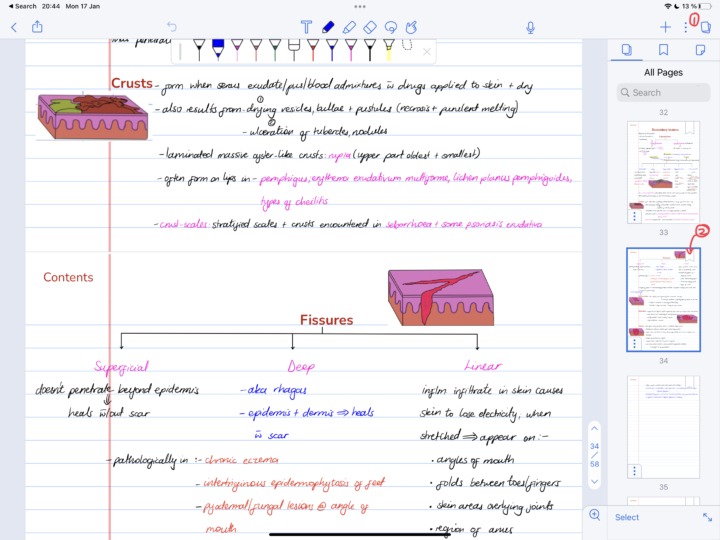 Search 20:44 Mon 17 Jan
13 %
1
All Pages
Search
Crusts - form when serous exudate/pus/blood admixtures w̄ drugs applied to skin + dry
- also results from ① drying vesicles, bullae + pustules (necrosis + purulent melting)
② - ulceration of tubercles, nodules
- laminated massive oyster-like crusts: rupia (upper part oldest + smallest)
- often form on lips in - pemphigus, erythema exudativum multiforme, lichen planus pemphigoides,
types of cheilitis
- crust-scales: stratified scales + crusts encountered in seborrhoea + some psoriasis exudativa
Contents
Fissures
Superficial
doesn't penetrate beyond epidermis
heals w̄/out scar
Deep
- aka rhagas
- epidermis + dermis ⇒ heals
w̄ scar
- pathologically in :- chronic eczema
- intertriginous epidermophytosis of feet
- pyodermal/fungal lesions @ angle of
mouth
Linear
inflm infiltrate in skin causes
skin to lose electricity, when
stretched ⇒ appear on :-
• angles of mouth
• folds between toes/fingers
• skin areas overlying joints
• region of anus
32
33
2
34
35
34
/
58
Select